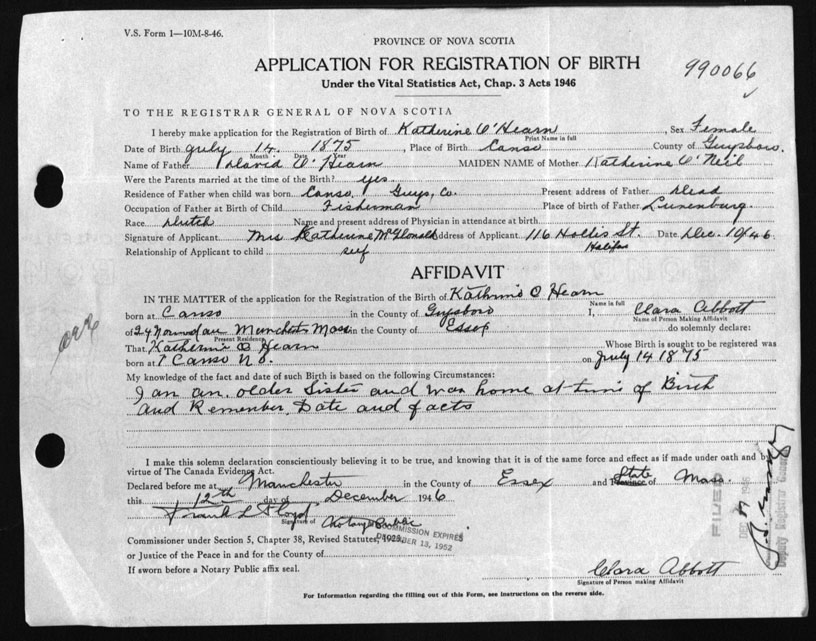 V.S. Form 1—10M-8-46.
PROVINCE OF NOVA SCOTIA
APPLICATION FOR REGISTRATION OF BIRTH
990066
Under the Vital Statistics Act, Chap. 3 Acts 1946
TO THE REGISTRAR GENERAL OF NOVA SCOTIA
I hereby make application for the Registration of Birth of Katherine O'Hearn Sex Female
Print Name in full
Date of Birth July 14 1875, Place of Birth Canso County of Guysboro.
Month Date Year
Name of Father David O'Hearn MAIDEN NAME of Mother Katherine O'Neil
Were the Parents married at the time of the Birth? yes.
Residence of Father when child was born. Canso, Guys, Co. Present address of Father Dead
Occupation of Father at Birth of Child Fisherman Place of birth of Father Lunenburg.
Race Dutch Name and present address of Physician in attendance at birth
Signature of Applicant Mrs Katherine Address of Applicant 116 Hollis St. Date Dec. 10/46
Relationship of Applicant to child self Halifax
AFFIDAVIT
IN THE MATTER of the application for the Registration of the Birth of O Hearn
Name in full
born at Canso in the County of Guysboro I, Clara Abbott
Name of Person Making Affidavit
of 24 Manchester Mass in the County of Essex do solemnly declare:
Present Residence
That Katherine O Hearn Whose Birth is sought to be registered was
born at Canso N.S. on July 14 1875
My knowledge of the fact and date of such Birth is based on the following Circumstances:
I an an older Sister and was home at time of Birth
and Remember Date and facts
I make this solemn declaration conscientiously believing it to be true, and knowing that it is of the same force and effect as if made under oath and by
virtue of The Canada Evidence Act.
Declared before me at Manchester in the County of Essex and Province of State Mass.
this 12th day of December 1946
Frank L Floyd
Signature of Notary Public
COMMISSION EXPIRES
DECEMBER 13, 1952
Commissioner under Section 5, Chapter 38, Revised Statutes, 1923,
or Justice of the Peace in and for the County of
If sworn before a Notary Public affix seal.
Clara Abbott
Signature of Person making Affidavit
For Information regarding the filling out of this Form, see instructions on the reverse side.
FILED
Deputy Registrar General